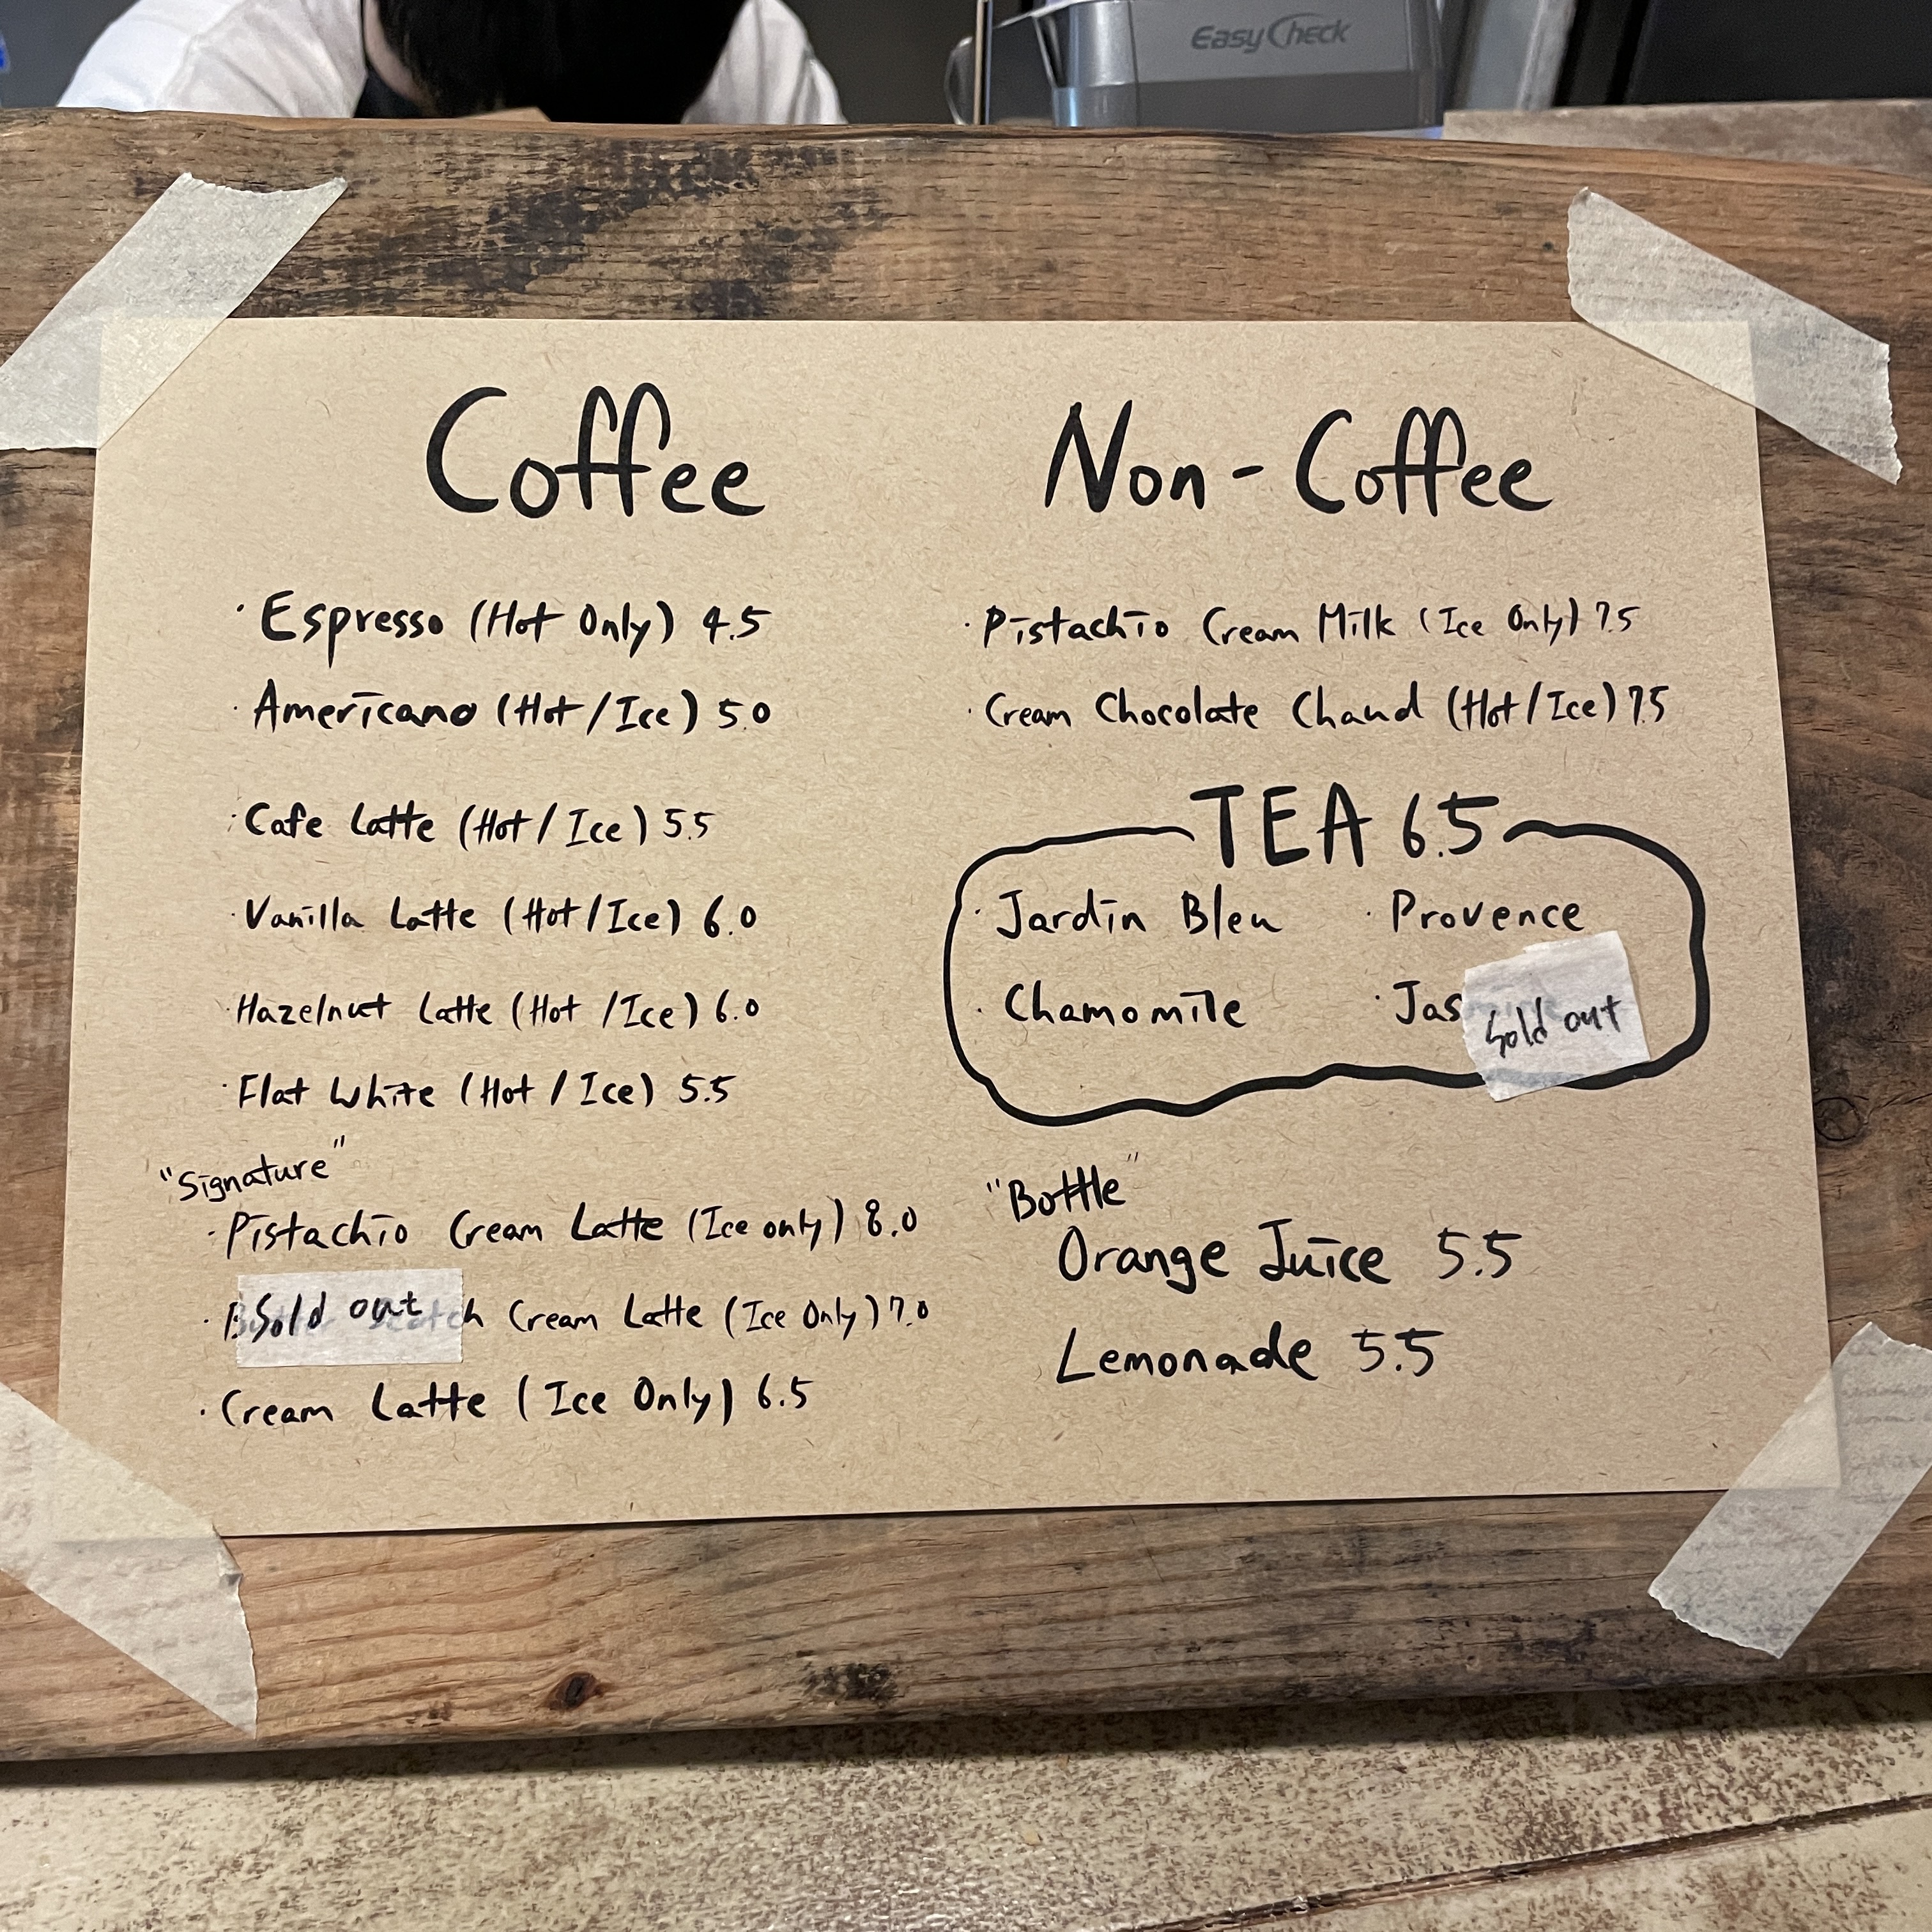 EasyCheck
Coffee
· Espresso (Hot Only) 4.5
· Americano (Hot / Ice) 5.0
· Cafe Latte (Hot / Ice) 5.5
· Vanilla Latte (Hot / Ice) 6.0
· Hazelnut Latte (Hot / Ice) 6.0
· Flat White (Hot / Ice) 5.5
"Signature"
· Pistachio Cream Latte (Ice only) 8.0
· Sold out Cream Latte (Ice Only) 7.0
· Cream Latte (Ice Only) 6.5
Non-Coffee
· Pistachio Cream Milk (Ice Only) 7.5
· Cream Chocolate Chaud (Hot / Ice) 7.5
TEA 6.5
· Jardin Bleu · Provence
· Chamomile · Jas Sold out
"Bottle"
Orange Juice 5.5
Lemonade 5.5